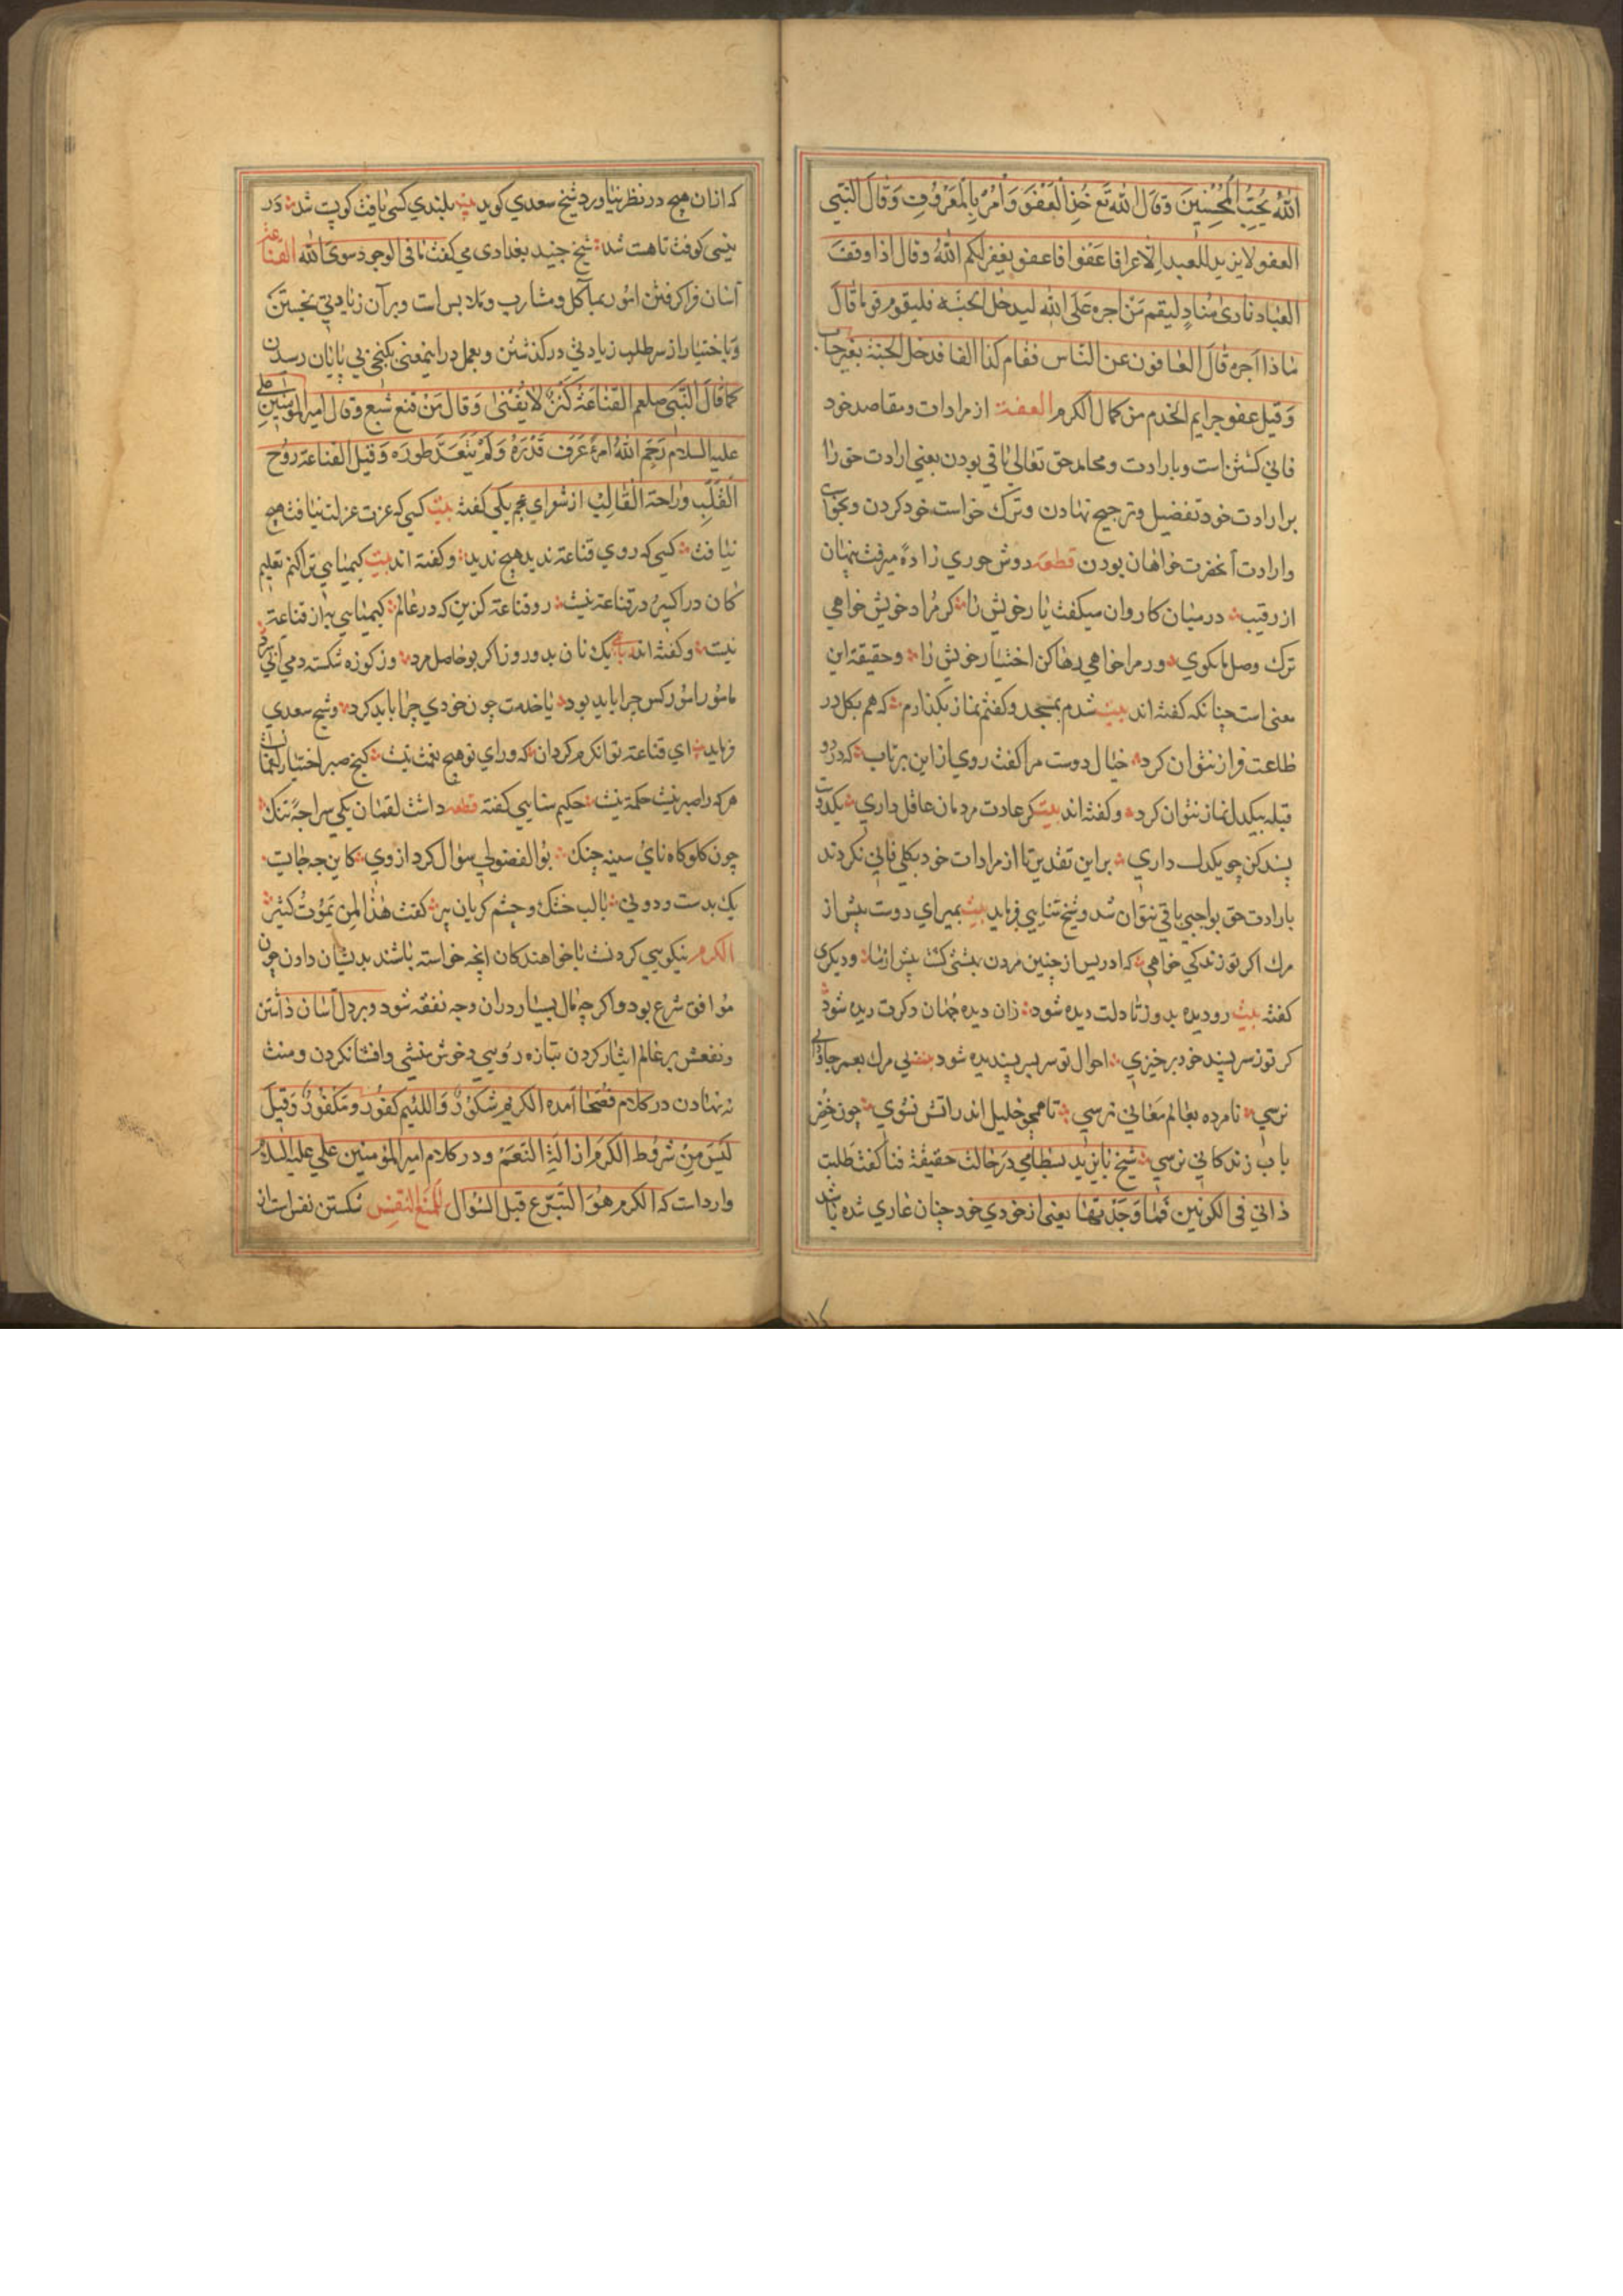 الله یحب المحسنین وقال الله تع خذ العفو وأمر بالمعروف وقال النبی
العفو لا یزید العبد الا عزا فاعفوا فاعفو یغفر لکم الله وقال اذا وقف
العباد نادی مناد لیقم من اجره علی الله لیدخل الجنه فلیقوم قوما قال
ماذا اجره قال العافون عن الناس فقام کذا الفا فدخل الجنة بغیر حساب
وقیل عفو جرایم الخدم من کمال الکرم العفة از مرادات ومقاصد خود
فانی کشتن است وبارادت ومحامد حق تعالی باقی بودن یعنی ارادت حق را
برارادت خود تفضیل وترجیح نهادن وترک خواست خود کردن وبخوای
وارادت آنحضرت خواهان بودن قطعه دوش حوری زاده میرفت پنهان
از رقیب درمیان کاروان میکفت یار خویش را کر مراد خویش خواهی
ترک وصل ما بکوی ور مرا خواهی رها کن اختیار خویش را وحقیقة این
معنی است چنانکه کفته اند بیت شدم بمسجد وکفتم نماز بکذارم که هم بکل در
طاعت فراز نتوان کرد خیال دوست مرا کفت روی از این برتاب که در دو
قبله بیکدل نماز نتوان کرد وکفته اند بیت کر عادت مردمان عاقل داری یکدوست
پسند کن چو یکدل داری براین تقدیر تا از مرادات خود بکلی فانی نکردند
بارادت حق بواجبی باقی نتوان شد وشیخ سنایی فرماید بیت بمیر ای دوست پیش از
مرک اکر تو زندکی خواهی که ادریس از چنین مردن بهشتی کشت پیش از ما ودیکری
کفته بیت رو دیده بدوز تا دلت دیده شود زان دیده جهان دکرت دیده شود
کر تو ز سر پسند خود برخیزی احوال تو سر بسر پسندیده شود بی مرک بعمر جاودانی
نرسی نامرده بعالم معانی نرسی تا همچو خلیل اندر آتش نشوی چون خضر
باب زندکانی نرسی شیخ بایزید بسطامی در حالت حقیقة فنا کفت طلبت
ذاتی فی الکونین فما وجدتها یعنی از خودی خود چنان عاری شده باشد
که از ان هیچ در نظر نیاورد شیخ سعدی کوید بیت بلندی کسی یافت کو پست شد در
نیستی کوفت تا هست شد شیخ جنید بغدادی می کفت ما فی الوجود سوی الله القناعة
آسان فراکرفتن امور بمآکل ومشارب وملابس است وبرآن زیادتی نجستن
وباختیار از سر طلب زیادتی درکذشتن وبعمل دراینمعنی بکنجی بی پایان رسیدن
کما قال النبی صلعم القناعة کنز لا یفنی وقال من قنع شبع وقال امیر المؤمنین علی
علیه السلام رحم الله امرء عرف قدره ولم یتعد طوره وقیل القناعة روح
القلب وراحة القالب از شعرای عجم یکی کفته بیت کسی که عزت عزلت نیافت هیچ
نیافت کسی که روی قناعة ندید هیچ ندید وکفته اند بیت کیمیایی ترا کنم تعلیم
کان در اکسیر ودر قناعة نیست رو قناعة کزین که در عالم کیمیایی به از قناعة
نیست وکفته اند یک نان بدو روز اکر بود حاصل مرد وز کوزه شکسته دمی آبی سرد
مامور امور کس چرا باید بود یا خدمت چون خودی چرا باید کرد وشیخ سعدی
فرماید ای قناعة توانکرم کردان که ورای تو هیچ نعمت نیست کنج صبر اختیار لقمانست
هر که را صبر نیست حکمة نیست حکیم سنایی کفته قطعه داشت لقمان یکی سراچه تنک
چون کلوکاه نای وسینه چنک بوالفضولی سؤال کرد از وی کاین چه جایست
یک بدست ودو پی بالب خشک وچشم کریان پیر کفت هذا لمن یموت کثیر
الکرم نیکویی کردنست باخواهندکان انچه خواسته باشند بدیشان دادن چون
موافق شرع بود واکرچه مال بسیار دران وجه نفقه شود وبر دل آسان داشتن
ونفعش بر عالم ایثار کردن بتازه رویی وخوش منشی وافشا نکردن ومنت
نه نهادن در کلام فصحا آمده الکریم شکور واللئیم کفور ومکفور وقیل
لیس من شروط الکرم ازالة النعم ودر کلام امیر المؤمنین علی علیه السلام
وارد است که الکرم هو التبرع قبل السؤال المنع النفس شکستن نفس است از